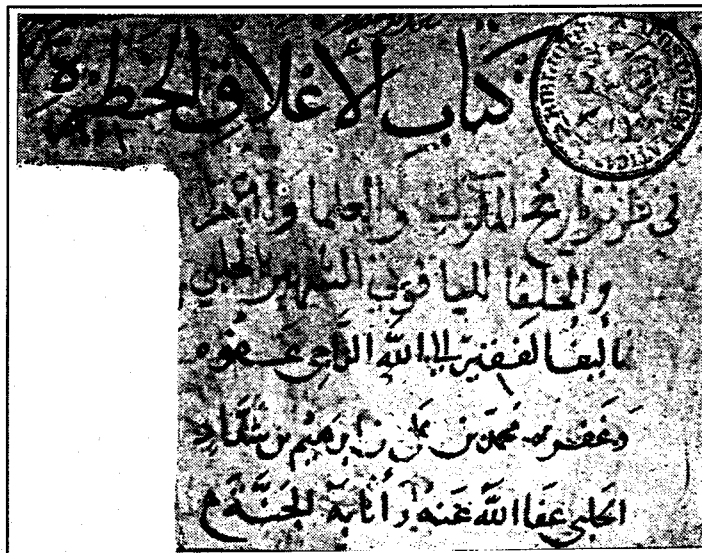 كتاب الأغلاق الخطيرة
في تواريخ الملوك والعلما والأمرا
والخلفا لليا قوتي الشهير بالحلبي
تأليف الفقير إلى الله الراجي عفوه
وغفره محمد بن علي بن إبرهيم بن شداد
الحلبي عفا الله عنه وأثابه الجنة